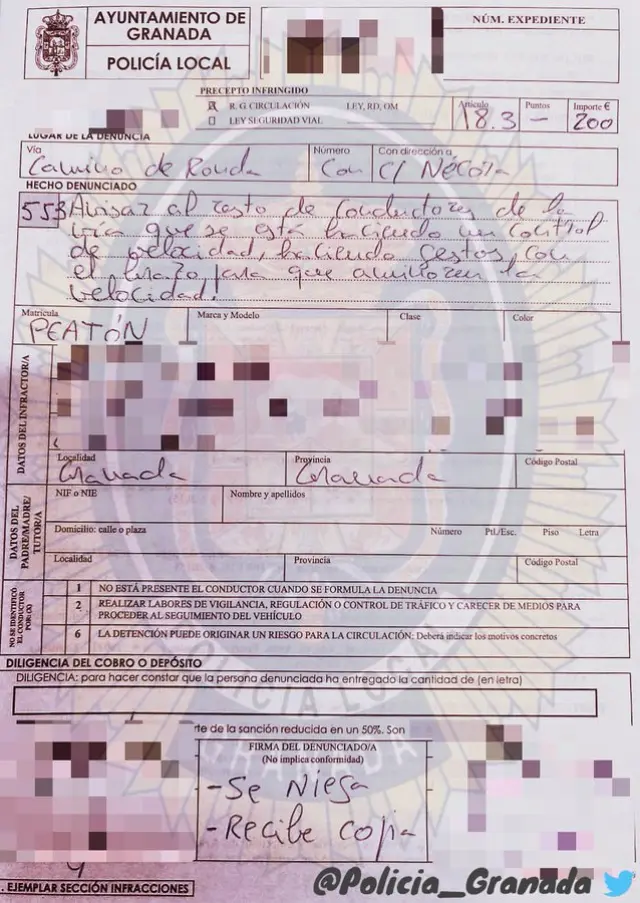 AYUNTAMIENTO DE
GRANADA
POLICÍA LOCAL
NÚM. EXPEDIENTE
PRECEPTO INFRINGIDO
R. G CIRCULACIÓN LEY, RD, OM
LEY SEGURIDAD VIAL
Artículo Puntos Importe €
18.3 - 200
LUGAR DE LA DENUNCIA
Vía Número Con dirección a
Camino de Ronda Con C/
HECHO DENUNCIADO
553 Avisar al resto de conductores de la
vía que se está haciendo un control
de velocidad, haciendo gestos, con
el brazo para que aminoren la
velocidad!
Matrícula Marca y Modelo Clase Color
PEATÓN
DATOS DEL INFRACTOR/A
Localidad Provincia Código Postal
Granada Granada
DATOS DEL
PADRE/MADRE/
TUTOR/A
NIF o NIE Nombre y apellidos
Domicilio: calle o plaza Número Ptl./Esc. Piso Letra
Localidad Provincia Código Postal
NO SE IDENTIFICÓ
EL CONDUCTOR
POR: (X)
1 NO ESTÁ PRESENTE EL CONDUCTOR CUANDO SE FORMULA LA DENUNCIA
2 REALIZAR LABORES DE VIGILANCIA, REGULACIÓN O CONTROL DE TRÁFICO Y CARECER DE MEDIOS PARA
PROCEDER AL SEGUIMIENTO DEL VEHÍCULO
6 LA DETENCIÓN PUEDE ORIGINAR UN RIESGO PARA LA CIRCULACIÓN: Deberá indicar los motivos concretos
DILIGENCIA DEL COBRO O DEPÓSITO
DILIGENCIA: para hacer constar que la persona denunciada ha entregado la cantidad de (en letra)
rte de la sanción reducida en un 50%. Son
FIRMA DEL DENUNCIADO/A
(No implica conformidad)
-Se Niega
-Recibe copia
. EJEMPLAR SECCIÓN INFRACCIONES
POLICIA LOCAL
GRANADA
@Policia_Granada